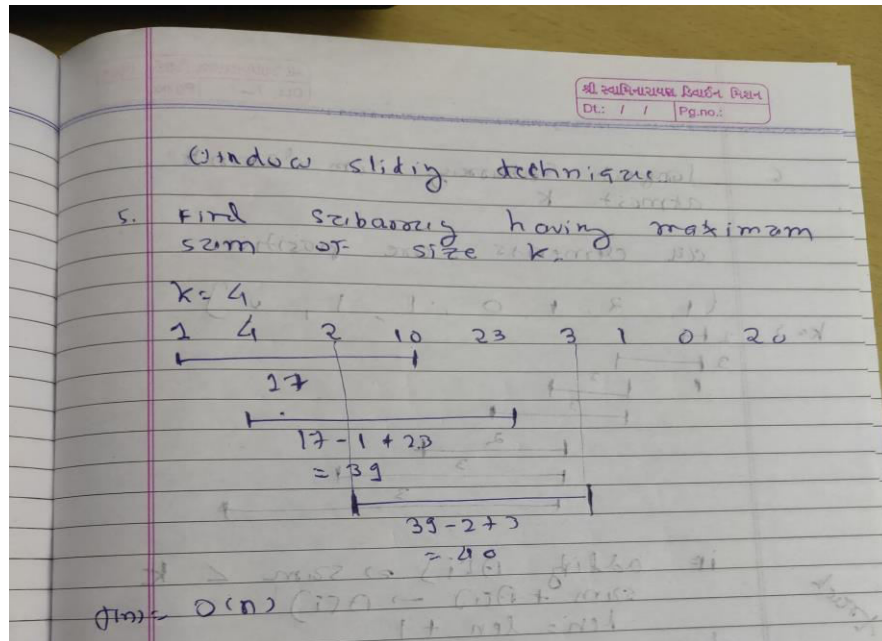 શ્રી સ્વામિનારાયણ ડિવાઈન મિશન
Dt.: / / Pg.no.:
Window sliding technique
5. Find subarray having maximum
sum of size k.
k=4
1 4 2 10 23 3 1 0 20
17
17-1+23
=39
39-2+3
=40
= O(n)